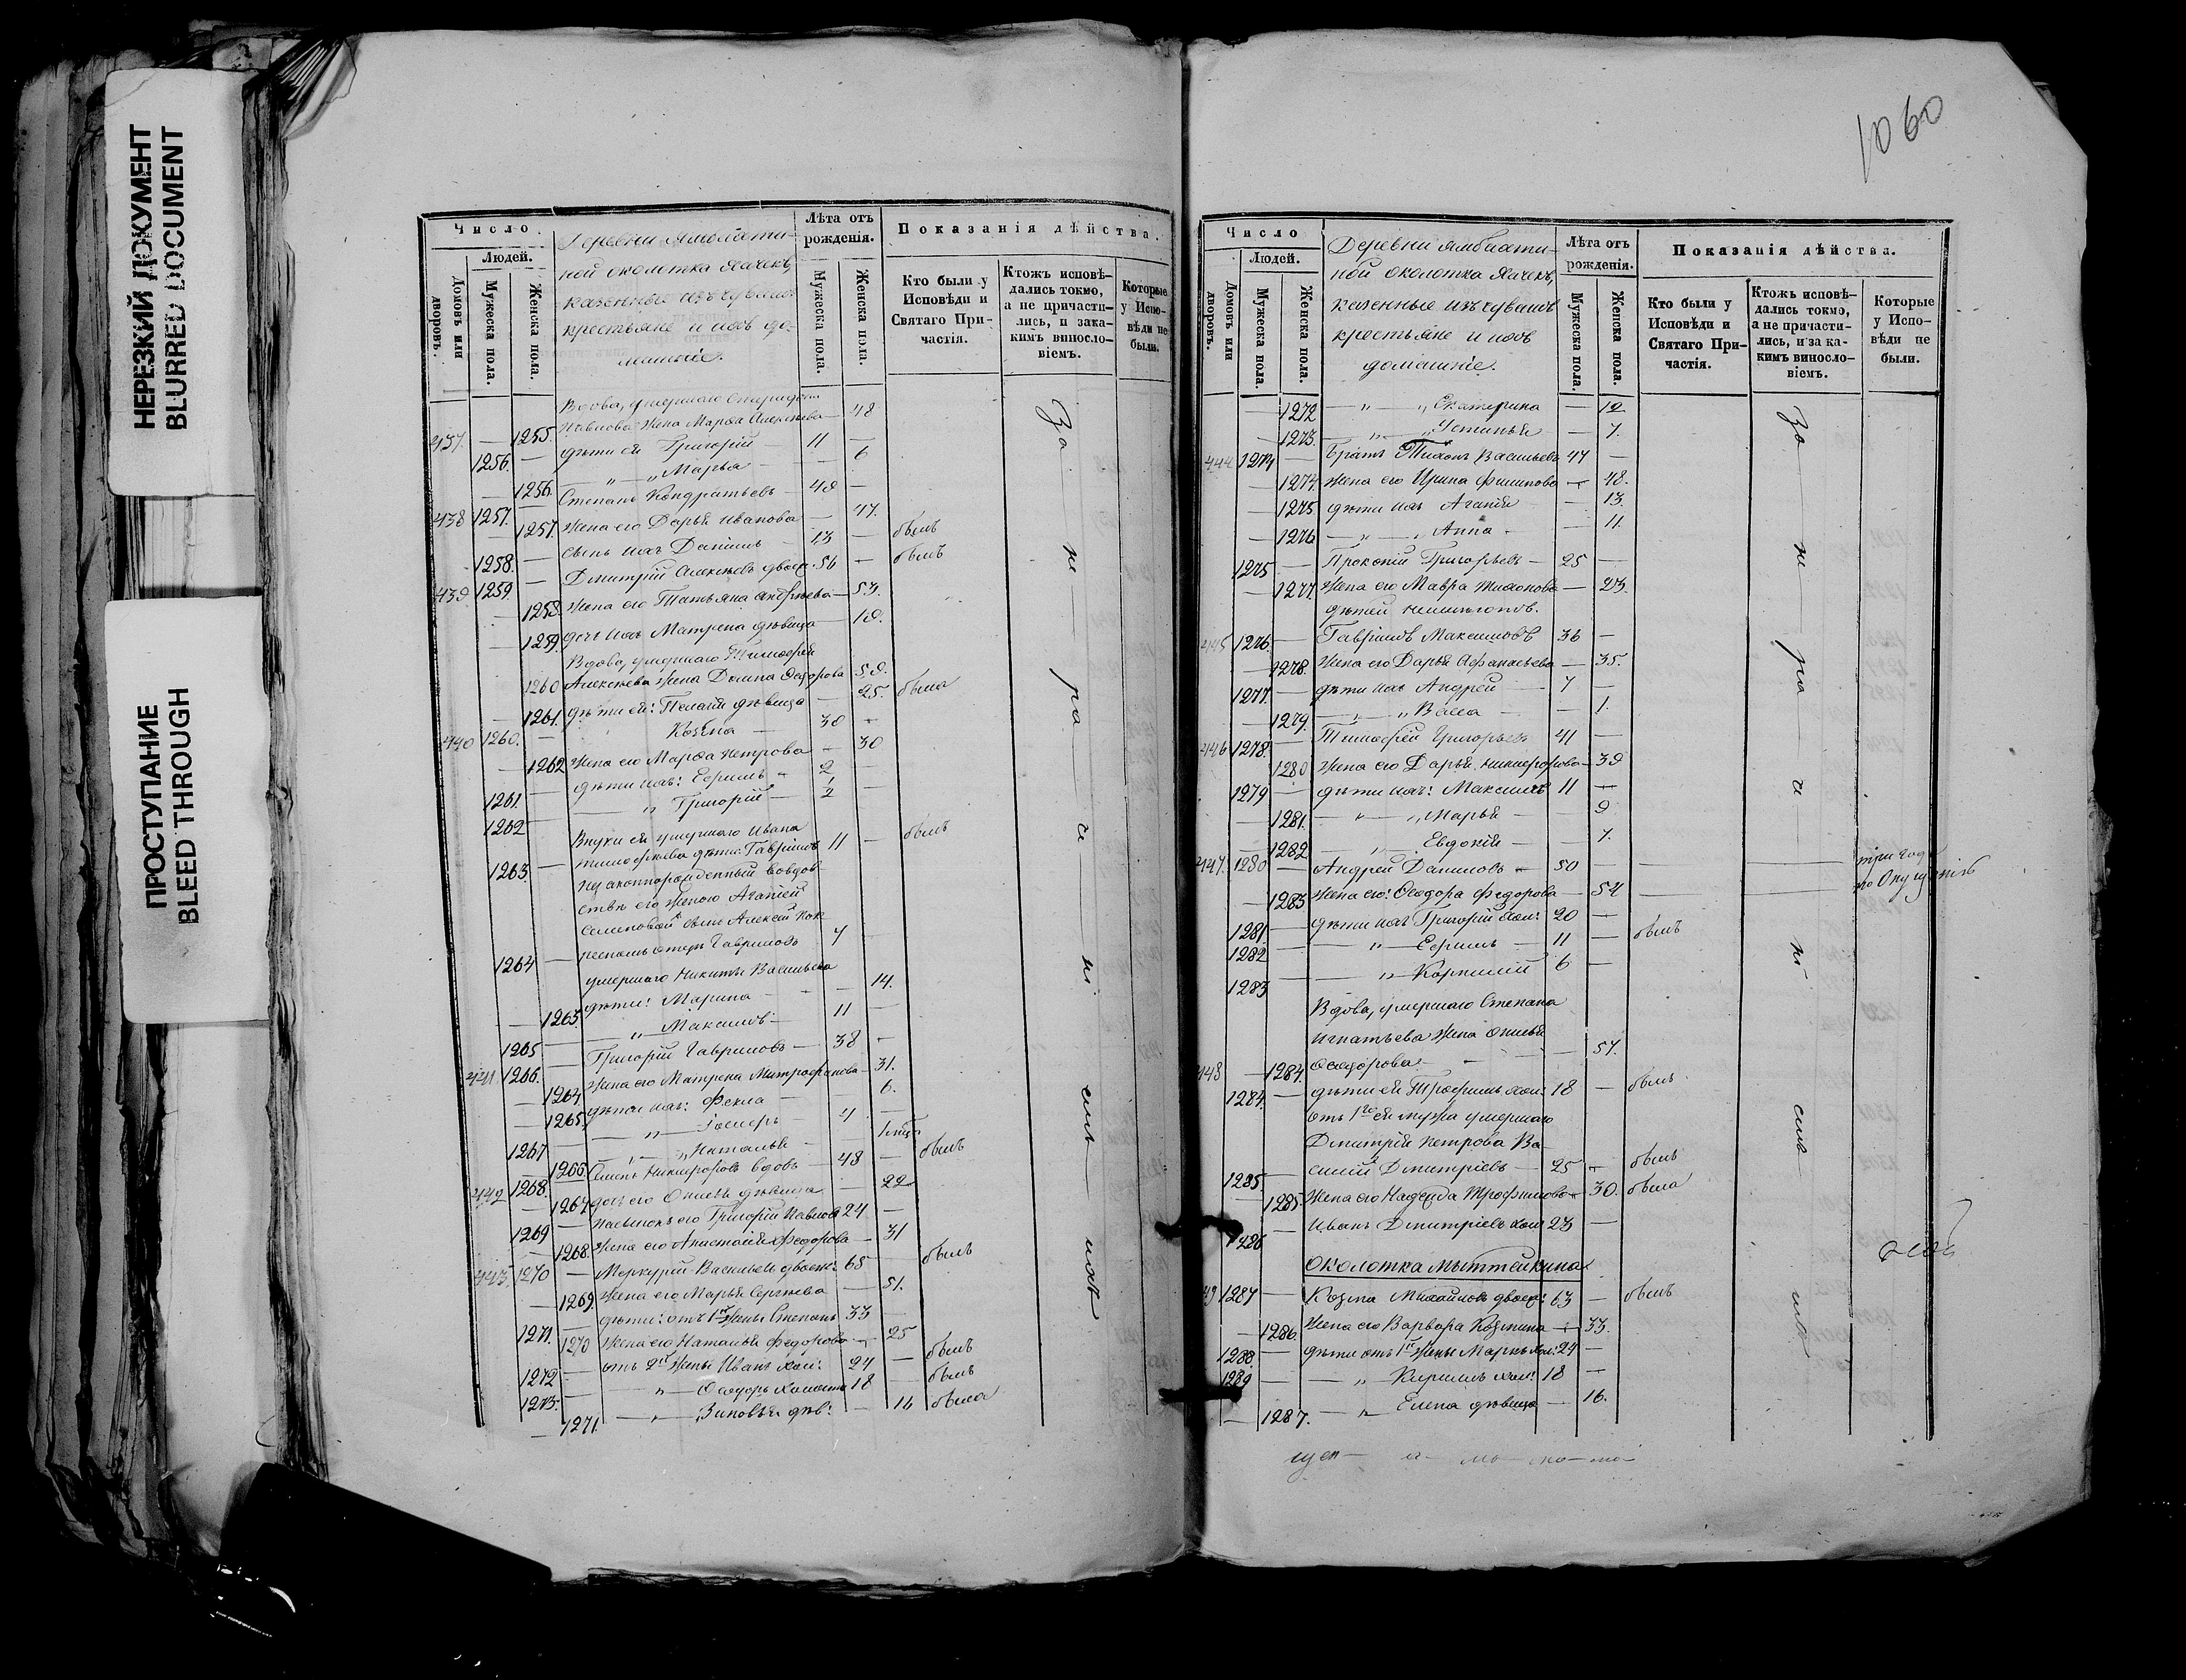 НЕРЕЗКИЙ ДОКУМЕНТ
BLURRED DOCUMENT
ПРОСТУПАНИЕ
BLEED THROUGH
Число
Людей.
Домовъ или дворовъ.
Мужеска пола.
Женска пола.
околотка
крестьяне и ихъ до-
машніе.
Лѣта отъ рожденія.
Мужеска пола.
Женска пола.
Показанія дѣйства.
Кто были у Исповѣди и Святаго Причастія.
Ктожъ исповѣдались токмо, а не причастились, и закакимъ винословіемъ.
Которые у Исповѣди не были.
Вдова, умершаго
437 — 1255. жена Марѳа Алексѣева — 48
1256. — дѣти ея Григорій 11 —
— 1256. — „ — „ Марья — — 6
438 1257. — Степанъ Кондратьевъ — 48 —
— 1257. Жена его Дарья Иванова — 47.
1258. — сынъ ихъ Даніилъ — 13 — былъ
439 1259. — Дмитрій Алексѣевъ двоеж. 56 — былъ
— 1258. Жена его Татьяна Андрѣева — 53.
— 1259. дочь ихъ Матрена дѣвица — 18.
Вдова, умершаго Тимоѳея
1260 Алексѣева жена Домна Ѳедорова 58.
— 1261. дѣти ея: Пелагія дѣвица — 25. была
440 1260. — Козма — 30 —
— 1262 Жена его Марѳа Петрова — 30
1261. — дѣти ихъ: Ефимъ — 2 —
1262 — „ Григорій — 1/2 —
Внуки ея умершаго Ивана
1263. — Тимоѳеева дѣти: Гавріилъ 11 — былъ
Незаконнорожденный вовдов-
ствѣ его женою Агаѳіей
Семеновой сынъ Алексѣй
1264 — отцу Гавриловъ 4
умершаго Никиты Васильева
— 1263. дѣти: Марина — — 14.
1265 — „ — Максимъ — 11 —
441 1266. — Григорій Гавриловъ — 38 —
— 1264 Жена его Матрена Митрофанова — 31.
— 1265. дѣти ихъ: Ѳекла — 6.
1267 — „ — 4 —
— 1266. — „ — „ Наталья —
442 1268. — Семенъ Никифоровъ вдовъ — 48 — былъ
— 1267 дочь его дѣвица — 22
1269 — пасынокъ его Григорій Павловъ 24 —
— 1268. Жена его Анастасія Ѳедорова — 31
443 1270 — Меркурій Васильевъ двоеж: 65 — былъ
— 1269. Жена его Марья Сергѣева — 51.
1271. — дѣти: отъ 1й жены Степанъ 33 —
1270 Жена его Наталья Ѳедорова — 25
1272 — отъ 2й жены Иванъ хол: 24 — былъ
1273. — „ — Ѳеодоръ холостъ 18 — былъ
— 1271. — „ — Зиновья дѣв: — 16 была
За не ра че ні емъ ихъ
1060
Число
Людей.
Домовъ или дворовъ.
Мужеска пола.
Женска пола.
околотка
казенные изъ чувашъ
крестьяне и ихъ
домашніе.
Лѣта отъ рожденія.
Мужеска пола.
Женска пола.
Показанія дѣйства.
Кто были у Исповѣди и Святаго Причастія.
Ктожъ исповѣдались токмо, а не причастились, и за какимъ винословіемъ.
Которые у Исповѣди не были.
— 1272 — „ — „ Екатерина — 12
— 1273. — „ — „ Устинья — 7.
444 1274 — Братъ Тихонъ Васильевъ 47 —
— 1274. Жена его Ирина Филипова — 48.
— 1275 дѣти ихъ Агапія — 13.
— 1276 — „ — „ Анна — 11.
1275 — Прокопій Григорьевъ — 25 —
— 1277. Жена его Мавра Тихонова — 23.
445 1276. — Гавріилъ Максимовъ 36 —
— 1278. Жена его Дарья Аѳанасьева — 35.
1277. — дѣти ихъ Андрей — 7 —
— 1279. — „ — „ Васса — — 1.
446 1278. — Тимоѳей Григорьевъ 41 —
1280 Жена его Дарья Никифорова — 39
1279 — дѣти ихъ: Максимъ 11 —
— 1281. — „ — „ Марья — — 9
— 1282 — „ Евдокія — — 7.
447. 1280 — Андрей Даниловъ — 50 —
— 1283 Жена его: Ѳеодора Ѳедорова — 54
1281. — дѣти ихъ Григорій хол: 20 —
1282 — „ — Ефимъ — 11 — былъ
1283 — „ — Корнилій 6 —
Вдова, умершаго Степана
Игнатьева жена
448 — 1284. Ѳеодорова. — — 57.
1284. — дѣти ея Трофимъ хол: 18 — былъ
отъ 1го ея мужа умершаго
Дмитрія Петрова Ва-
1285. — силій Дмитріевъ — 25 — былъ
— 1285. Жена его Надежда Трофимова — 30. была
1286 — Иванъ Дмитріевъ хол: 23 —
Околотка Мыттейкина.
1287 — Козма Михайловъ двоеж: 63 — былъ
— 1286. Жена его Варвара Козмина — 33.
1288. — дѣти отъ 1й жены Маркъ хол: 24 —
1289 — „ — Кирилъ хол: 18 —
— 1287. — „ — Елена дѣвица — 16.
За не ра че ні емъ ихъ
три года